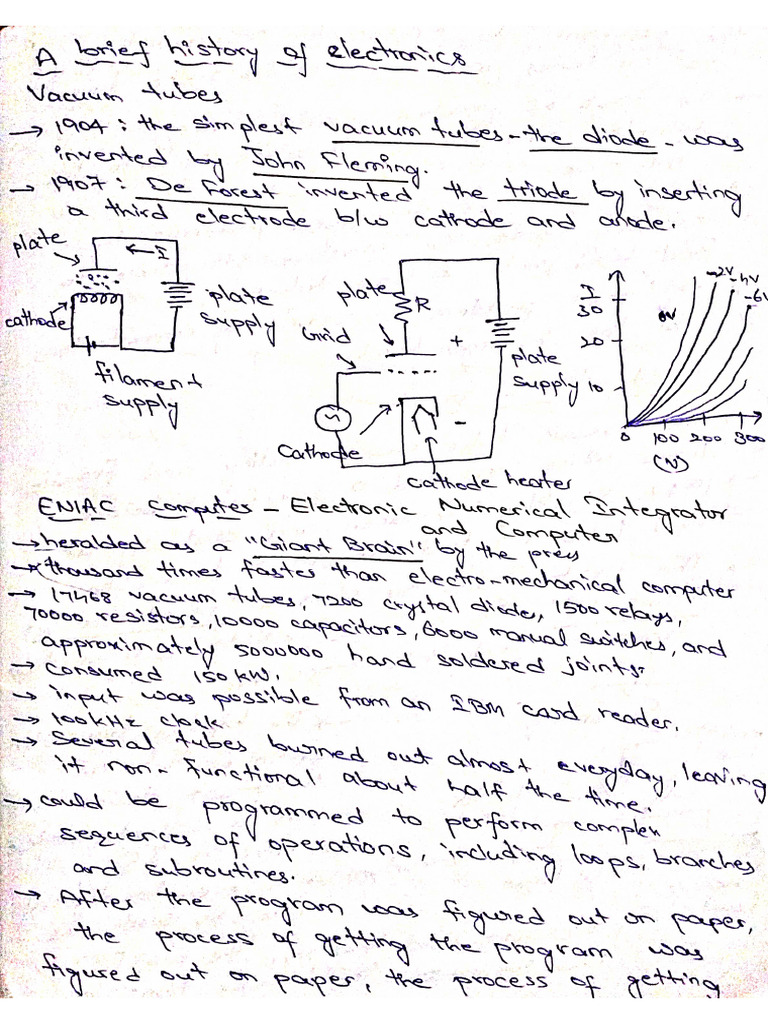 A brief history of electronics
Vacuum tubes
→ 1904 : the simplest vacuum tubes - the diode - was
invented by John Fleming.
→ 1907 : De Forest invented the triode by inserting
a third electrode b/w cathode and anode.
plate
← I
cathode
plate
supply
filament
supply
plate
R
Grid
+
plate
supply
-
Cathode
cathode heater
I
30
20
10
0V
-2V
-4V
-6V
0 100 200 300
(V)
ENIAC Computer - Electronic Numerical Integrator
and Computer
→ heralded as a "Giant Brain" by the press
→ thousand times faster than electro-mechanical computer
→ 17468 vacuum tubes, 7200 crystal diode, 1500 relays,
70000 resistors, 10000 capacitors, 6000 manual switches, and
approximately 5000000 hand soldered joints.
→ Consumed 150 kW.
→ input was possible from an IBM card reader.
→ 100kHz clock
→ Several tubes burned out almost everyday, leaving
it non-functional about half the time.
→ could be programmed to perform complex
sequences of operations, including loops, branches
and subroutines.
→ After the program was figured out on paper,
the process of getting the program was
figured out on paper, the process of getting